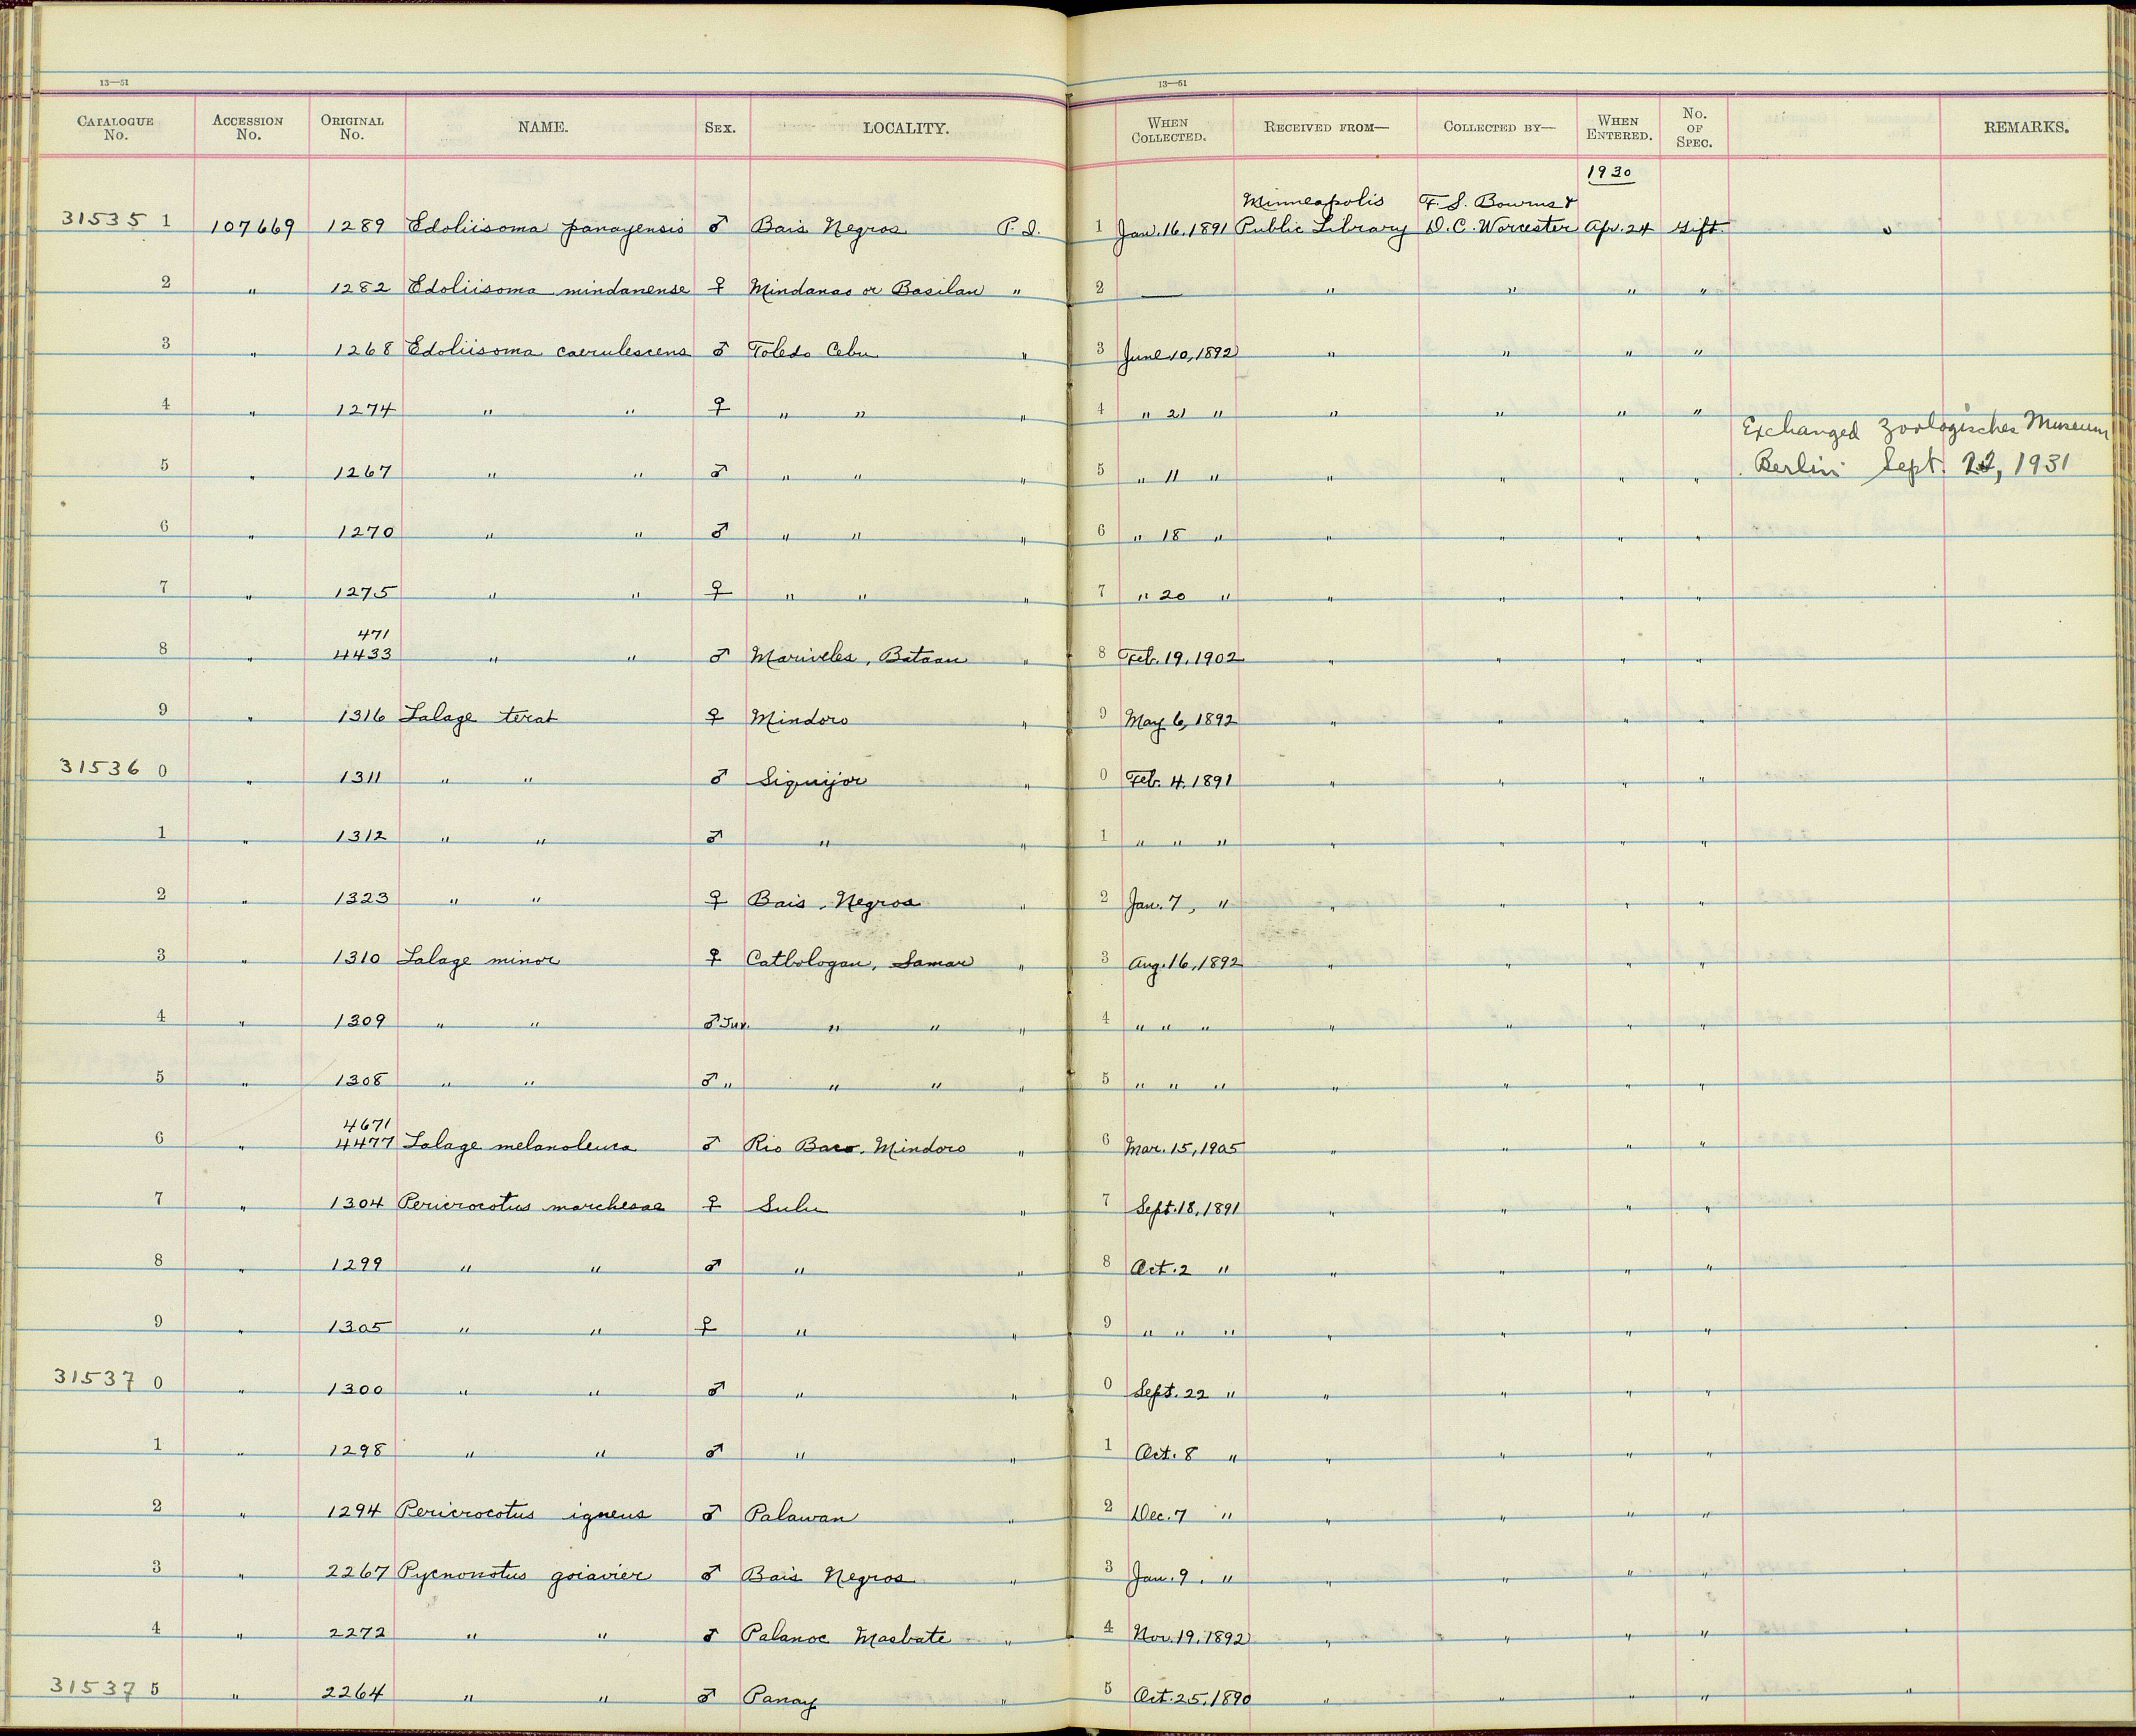 13—51
13—51
CATALOGUE No. ACCESSION No. ORIGINAL No. NAME. SEX. LOCALITY. WHEN COLLECTED. RECEIVED FROM— COLLECTED BY— WHEN ENTERED. No. OF SPEC. REMARKS.
1930
Minneapolis F. S. Bourns &
31535 1 107669 1289 Edoliisoma panayensis ♂ Bais Negros P. I. 1 Jan. 16. 1891 Public Library D. C. Worcester Apr. 24 Gift
2 " 1282 Edoliisoma mindanense ♀ Mindanao or Basilan " 2 — " " " "
3 " 1268 Edoliisoma caerulescens ♂ Toledo Cebu " 3 June 10, 1892 " " " "
4 " 1274 " " ♀ " " " 4 " 21 " " " " "
Exchanged Zoologisches Museum
5 " 1267 " " ♂ " " " 5 " 11 " " " " " Berlin Sept. 22, 1931
6 " 1270 " " ♂ " " " 6 " 18 " " " " "
7 " 1275 " " ♀ " " " 7 " 20 " " " " "
471
8 " 4433 " " ♂ Mariveles, Bataan " 8 Feb. 19, 1902 " " " "
9 " 1316 Lalage terat ♀ Mindoro " 9 May 6, 1892 " " " "
31536 0 " 1311 " " ♂ Siquijor " 0 Feb. 4. 1891 " " " "
1 " 1312 " " ♂ " " 1 " " " " " " "
2 " 1323 " " ♀ Bais, Negros " 2 Jan. 7, " " " " "
3 " 1310 Lalage minor ♀ Catbologan, Samar " 3 Aug. 16, 1892 " " " "
4 " 1309 " " ♂ Juv. " " " 4 " " " " " " "
5 " 1308 " " ♂ " " " " 5 " " " " " " "
4671
6 " 4477 Lalage melanoleuca ♂ Rio Baco, Mindoro " 6 Mar. 15, 1905 " " " "
7 " 1304 Pericrocotus marchesae ♀ Sulu " 7 Sept. 18, 1891 " " " "
8 " 1299 " " ♂ " " 8 Oct. 2 " " " " "
9 " 1305 " " ♀ " " 9 " " " " " " "
31537 0 " 1300 " " ♂ " " 0 Sept. 22 " " " " "
1 " 1298 " " ♂ " " 1 Oct. 8 " " " " "
2 " 1294 Pericrocotus igneus ♂ Palawan " 2 Dec. 7 " " " " "
3 " 2267 Pycnonotus goiavier ♂ Bais Negros " 3 Jan. 9. " " " " "
4 " 2272 " " ♂ Palanoc Masbate " 4 Nov. 19, 1892 " " " "
31537 5 " 2264 " " ♂ Panay " 5 Oct. 25, 1890 " " " "